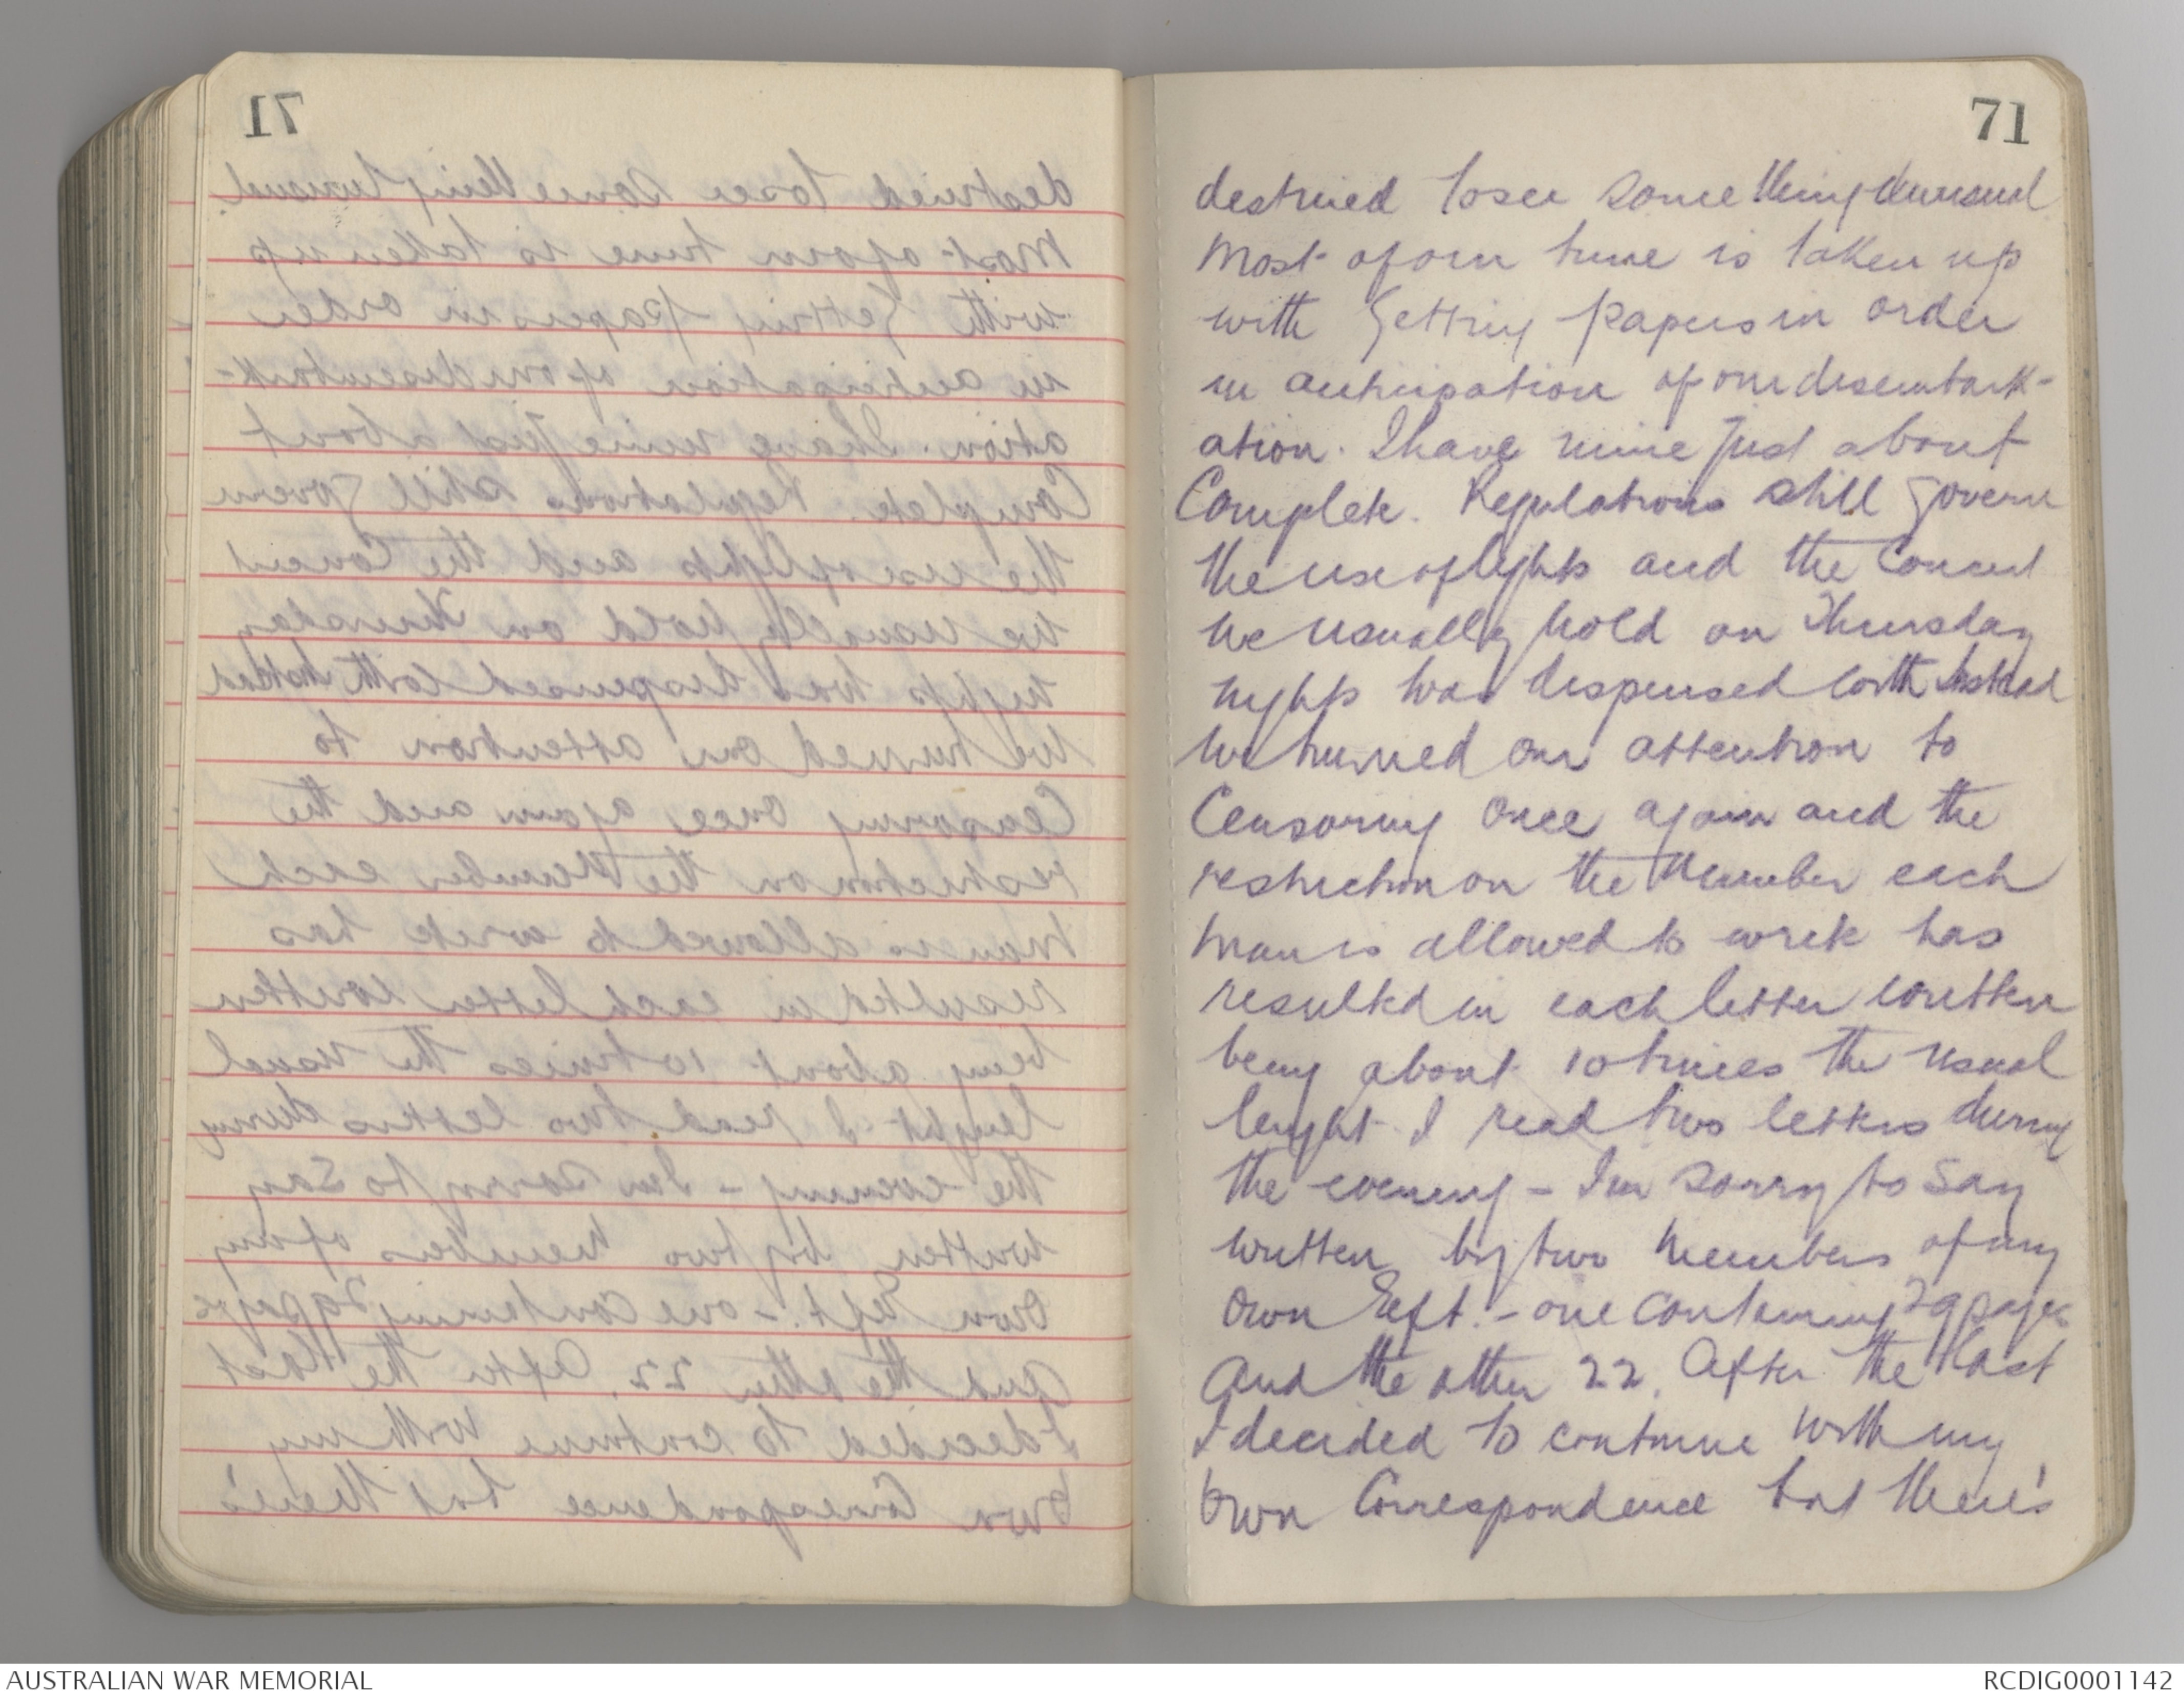 71
destined to see something unusual
Most of our time is taken up
with getting papers in order
in anticipation of our disembark-
ation. I have mine just about
Complete. Regulations still govern
the use of lights and the Concert
we usually hold on Thursday
nights was dispensed with Instead
We turned our attention to
Censoring once again and the
restriction on the Number each
man is allowed to write has
resulted in each letter written
being about 10 times the usual
lenght. I read two letters during
the evening - I'm sorry to say
written by two members of my
own Reft. - one containing 29 pages
and the other 22. After the last
I decided to continue with my
own Correspondence but there's
AUSTRALIAN WAR MEMORIAL
RCDIG0001142